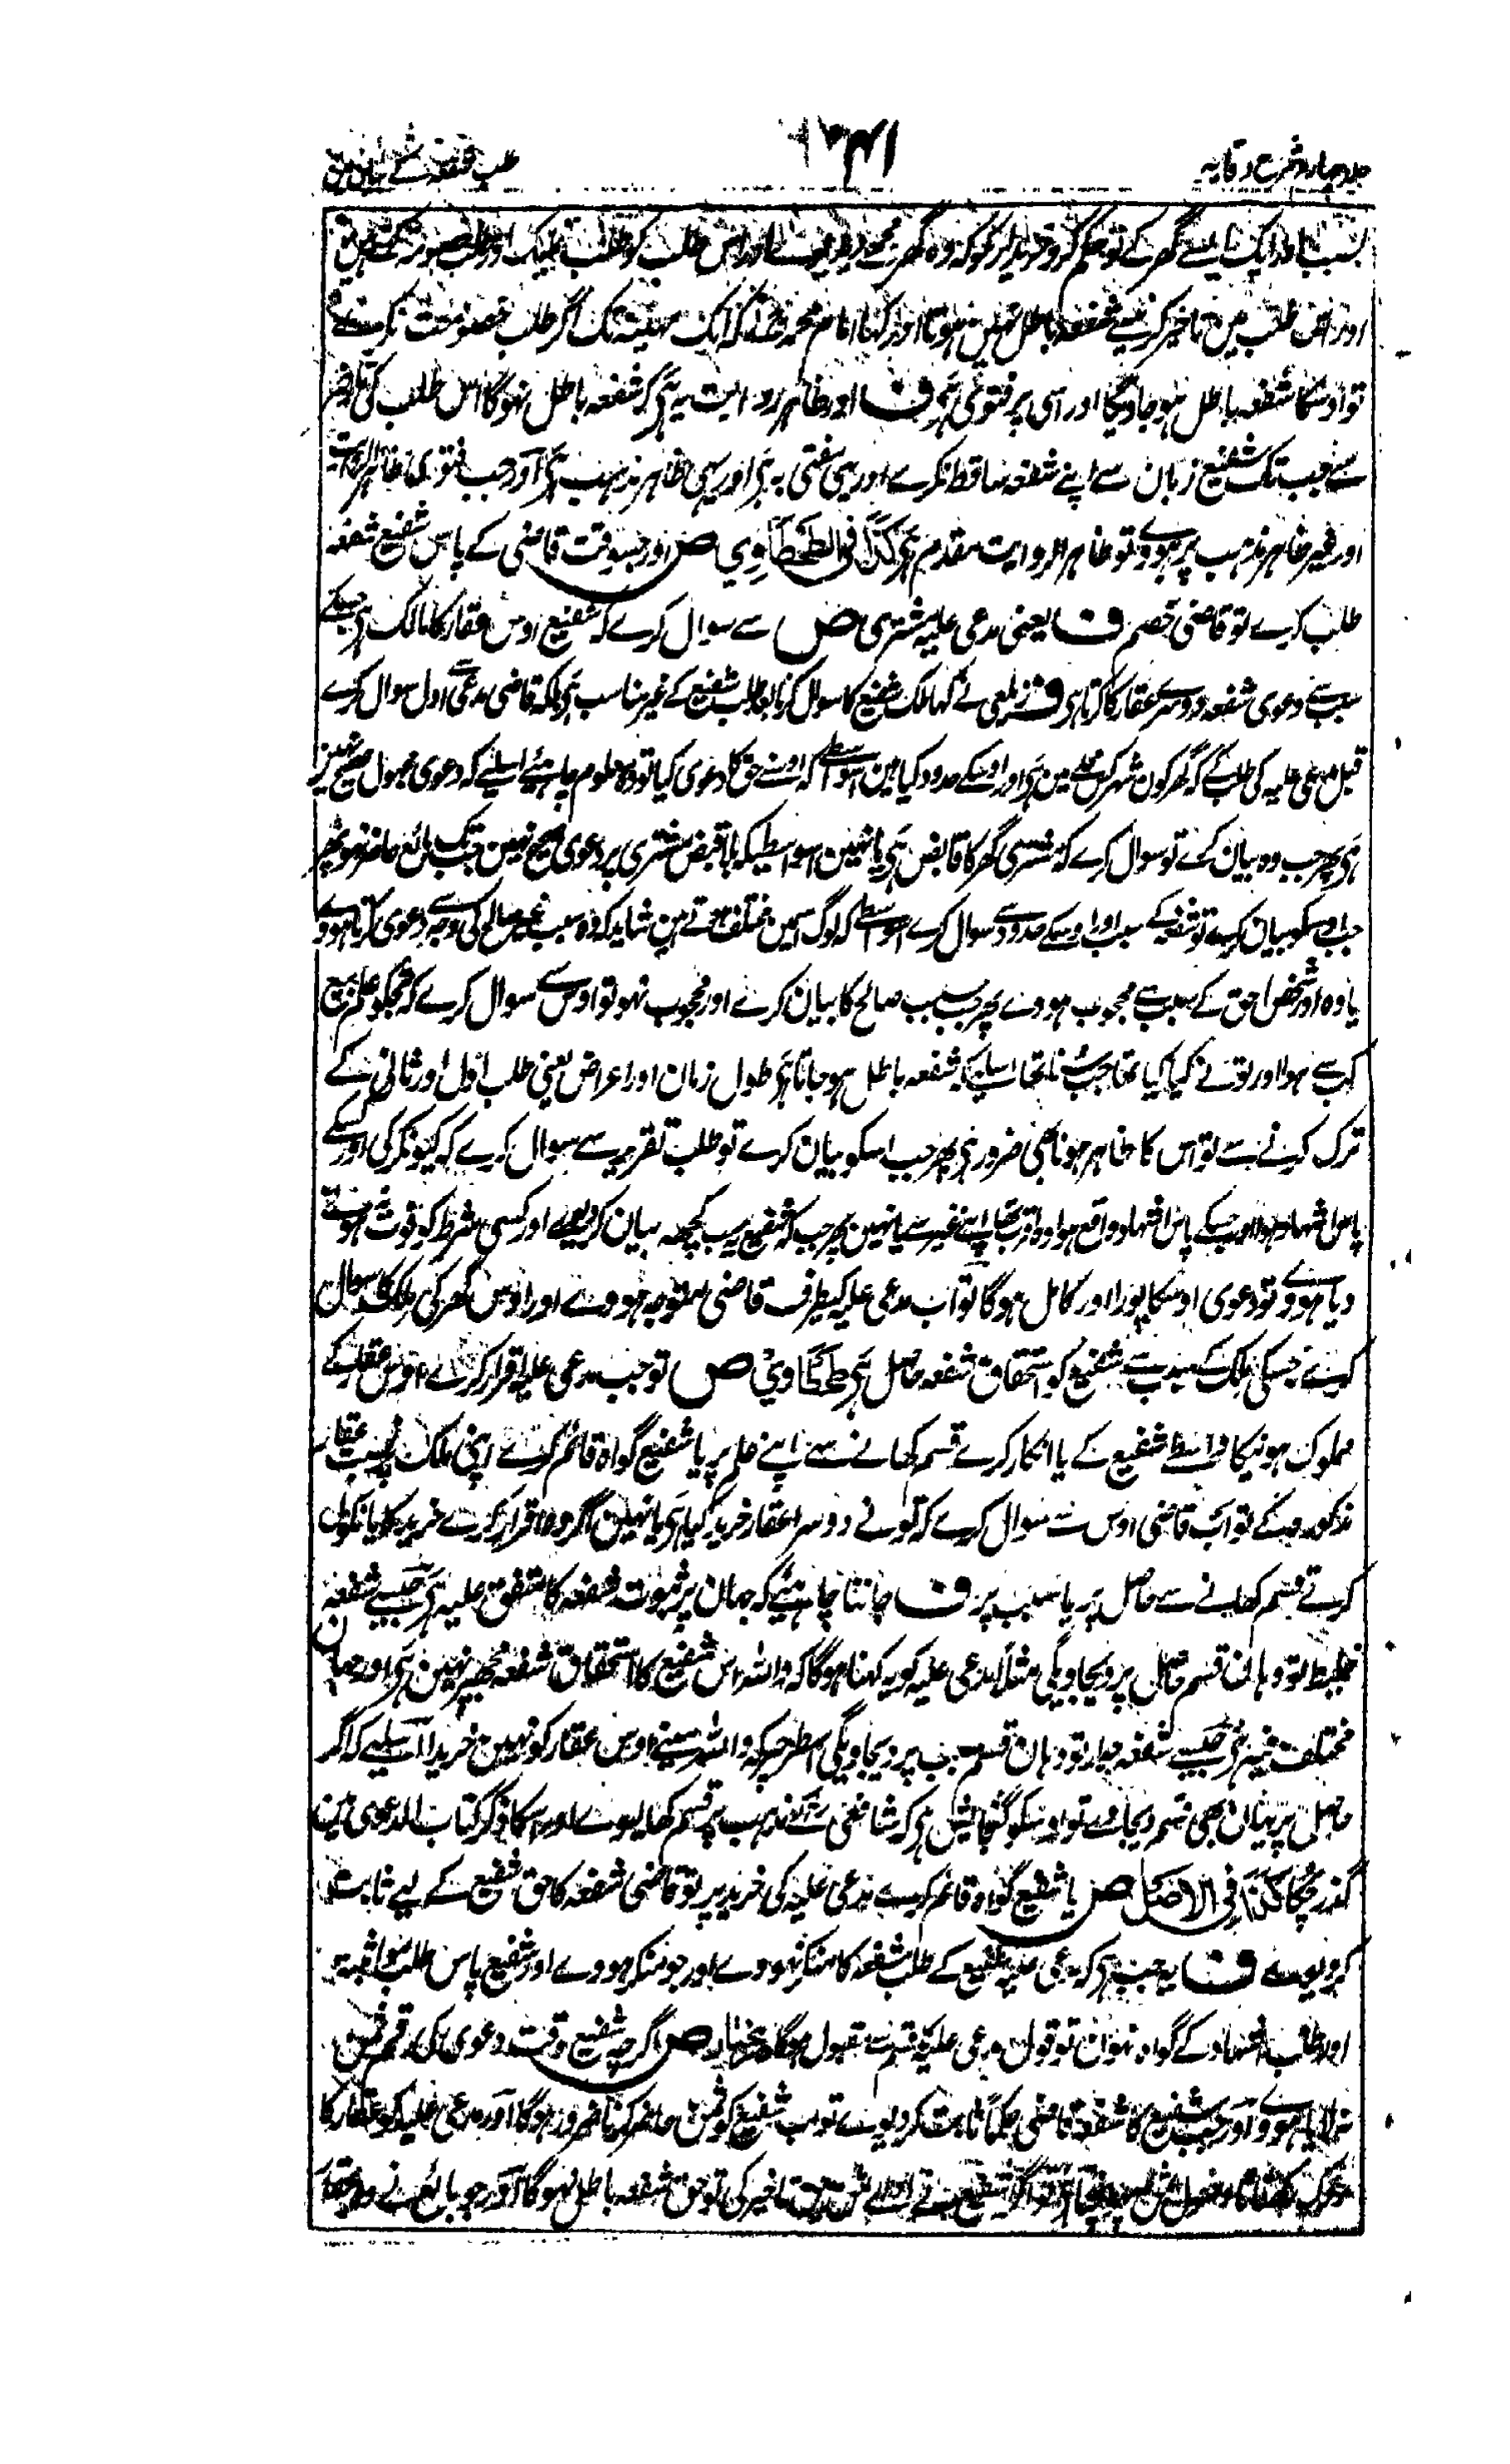 جلد چہارم شرح وقایہ
طلب شفعہ کے بیان مین
بسبب اور ایک ایسے گھر کے تو حکم کرو خریدار کو کہ وہ گھر مجھے دیدیوے اور اس طلب کو طلب تملیک اور طلب خصومت کہتے ہین
اور اس طلب مین تاخیر کرنیسے شفعہ باطل نہین ہوتا اور کہا امام محمد نے کہ ایک مہینے تک اگر طلب خصومت نکرے
تو اوسکا شفعہ باطل ہو جاویگا اور اسی پر فتوی ہی ف اور ظاہر روایت یہ ہی کہ شفعہ باطل نہوگا اس طلب کی تاخیر
سے جب تک شفیع زبان سے اپنے شفعہ ساقط نکرے اور یہی مفتی بہ ہی اور یہی ظاہر مذہب ہی اور جب فتوی ظاہر الروایت
اور غیر ظاہر مذہب پر ہووے تو ظاہر الروایت مقدم ہی کذا فی الطحطاوی ص اور جسوقت قاضی کے پاس شفیع شفعہ
طلب کرے تو قاضی خصم ف یعنی مدعی علیہ مشتری ص سے سوال کرے کہ شفیع اوس عقار کا مالک ہی جسکے
سبب سے دعوی شفعہ دوسرے عقار کا کرتا ہی ف زیلعی نے کہا ملک شفیع کا سوال کرنا بعد طلب شفیع کے غیر مناسب ہی بلکہ قاضی مدعی سے اول سوال کرے
قبل مدعی علیہ کی طلب کے کہ گھر کون شہر کس محلے مین ہی اور اوسکے حدود کیا ہین اسواسطے کہ اوسنے حق کا دعوی کیا تو وہ معلوم چاہیے اسلیے کہ دعوی مجہول صحیح نہین
ہی پھر جب وہ بیان کرے تو سوال کرے کہ مشتری گھر کا قابض ہی یا نہین اسواسطیکہ بلا قبض مشتری پر دعوی صحیح نہین جب تک بائع حاضر نہو پھر
جب اوسکو بیان کرے تو شفعہ کے سبب اور اوسکے حدود سے سوال کرے اسواسطے کہ لوگ اسمین مختلف ہوتے ہین شاید کہ وہ سبب غیر صالح کی وجہ سے دعوی کرتا ہووے
یا وہ اور شخص احق کے سبب سے محجوب ہووے پھر جب سبب صالح کا بیان کرے اور محجوب نہو تو اوس سے سوال کرے کہ تجکو علم بیع
کب سے ہوا اور تونے کیا کیا تھا جب سنا تھا اسلیے کہ شفعہ باطل ہو جاتا ہی طول زمان اور اعراض یعنی طلب اول اور ثانی کے
ترک کرنے سے تو اس کا ظاہر ہونا بھی ضرور ہی پھر جب اسکو بیان کرے تو طلب تقریر سے سوال کرے کہ کیونکر کی اور کسکے
پاس اشہاد ہوا اور جسکے پاس اشہاد واقع ہوا وہ اقرب تھا اپنے غیر سے یا نہین پھر جب کہ شفیع یہ سب کچھ بیان کردیوے اور کسی شرط کو فوت نہونے
دیا ہووے تو دعوی اوسکا پورا اور کامل ہوگا تو اب مدعی علیہ کیطرف قاضی متوجہ ہووے اور اوس گھر کی ملک کا سوال
کرے جسکی ملک کے سبب سے شفیع کو استحقاق شفعہ حاصل ہی طحطاوی ص تو جب مدعی علیہ اقرار کرے اوس عقار کے
مملوک ہونیکا واسطے شفیع کے یا انکار کرے قسم کھانے سے اپنے علم پر یا شفیع گواہ قائم کرے اپنی ملک پر نسبت عقار
مذکور کے تو اب قاضی اوس سے سوال کرے کہ تونے دوسرا عقار خرید کیا ہی یا نہین اگر وہ اقرار کرے خرید کا یا نکول
کرے قسم کھانے سے حاصل پر یا سبب پر ف جاننا چاہیے کہ جہان پر ثبوت شفعہ کا متفق علیہ ہی جیسے شفعہ
خلیط تو وہان قسم حاصل پر دیجاویگی مثلا مدعی علیہ کو یہ کہنا ہوگا کہ واللہ اس شفیع کا استحقاق شفعہ مجھپر نہین ہی اور جہان
مختلف فیہ ہی جیسے شفعہ جار تو وہان قسم سبب پر دیجاویگی اسطرحپر کہ واللہ مینے اوس عقار کو نہین خریدا اسلیے کہ اگر
حاصل پر یہان بھی قسم دیجاوے تو اوسکو گنجایش ہی کہ شافعی کے مذہب پر قسم کھا لیوے اور اسکا ذکر کتاب الدعوی مین
گذر چکا کذا فی الاصل ص یا شفیع گواہ قائم کرے مدعی علیہ کی خرید پر تو قاضی شفعہ کا حق شفیع کے لیے ثابت
کردیوے ف یہ جب ہی کہ مدعی علیہ شفیع کے طلب شفعہ کا منکر نہووے اور جو منکر ہووے اور شفیع پاس طلب مواثبہ
اور طلب اشہاد کے گواہ نہوان تو قول مدعی علیہ کا قسم سے مقبول ہوگا درمختار ص اگرچہ شفیع وقت دعوی کی رقم ثمن
نہ لایا ہووے اور جب شفیع کا شفعہ قاضی حکما ثابت کردیوے تو اب شفیع کو ثمن حاضر کرنا ضرور ہوگا اور مدعی علیہ کو عقار کا
تو حق شفعہ باطل نہوگا اور جو بائع نے